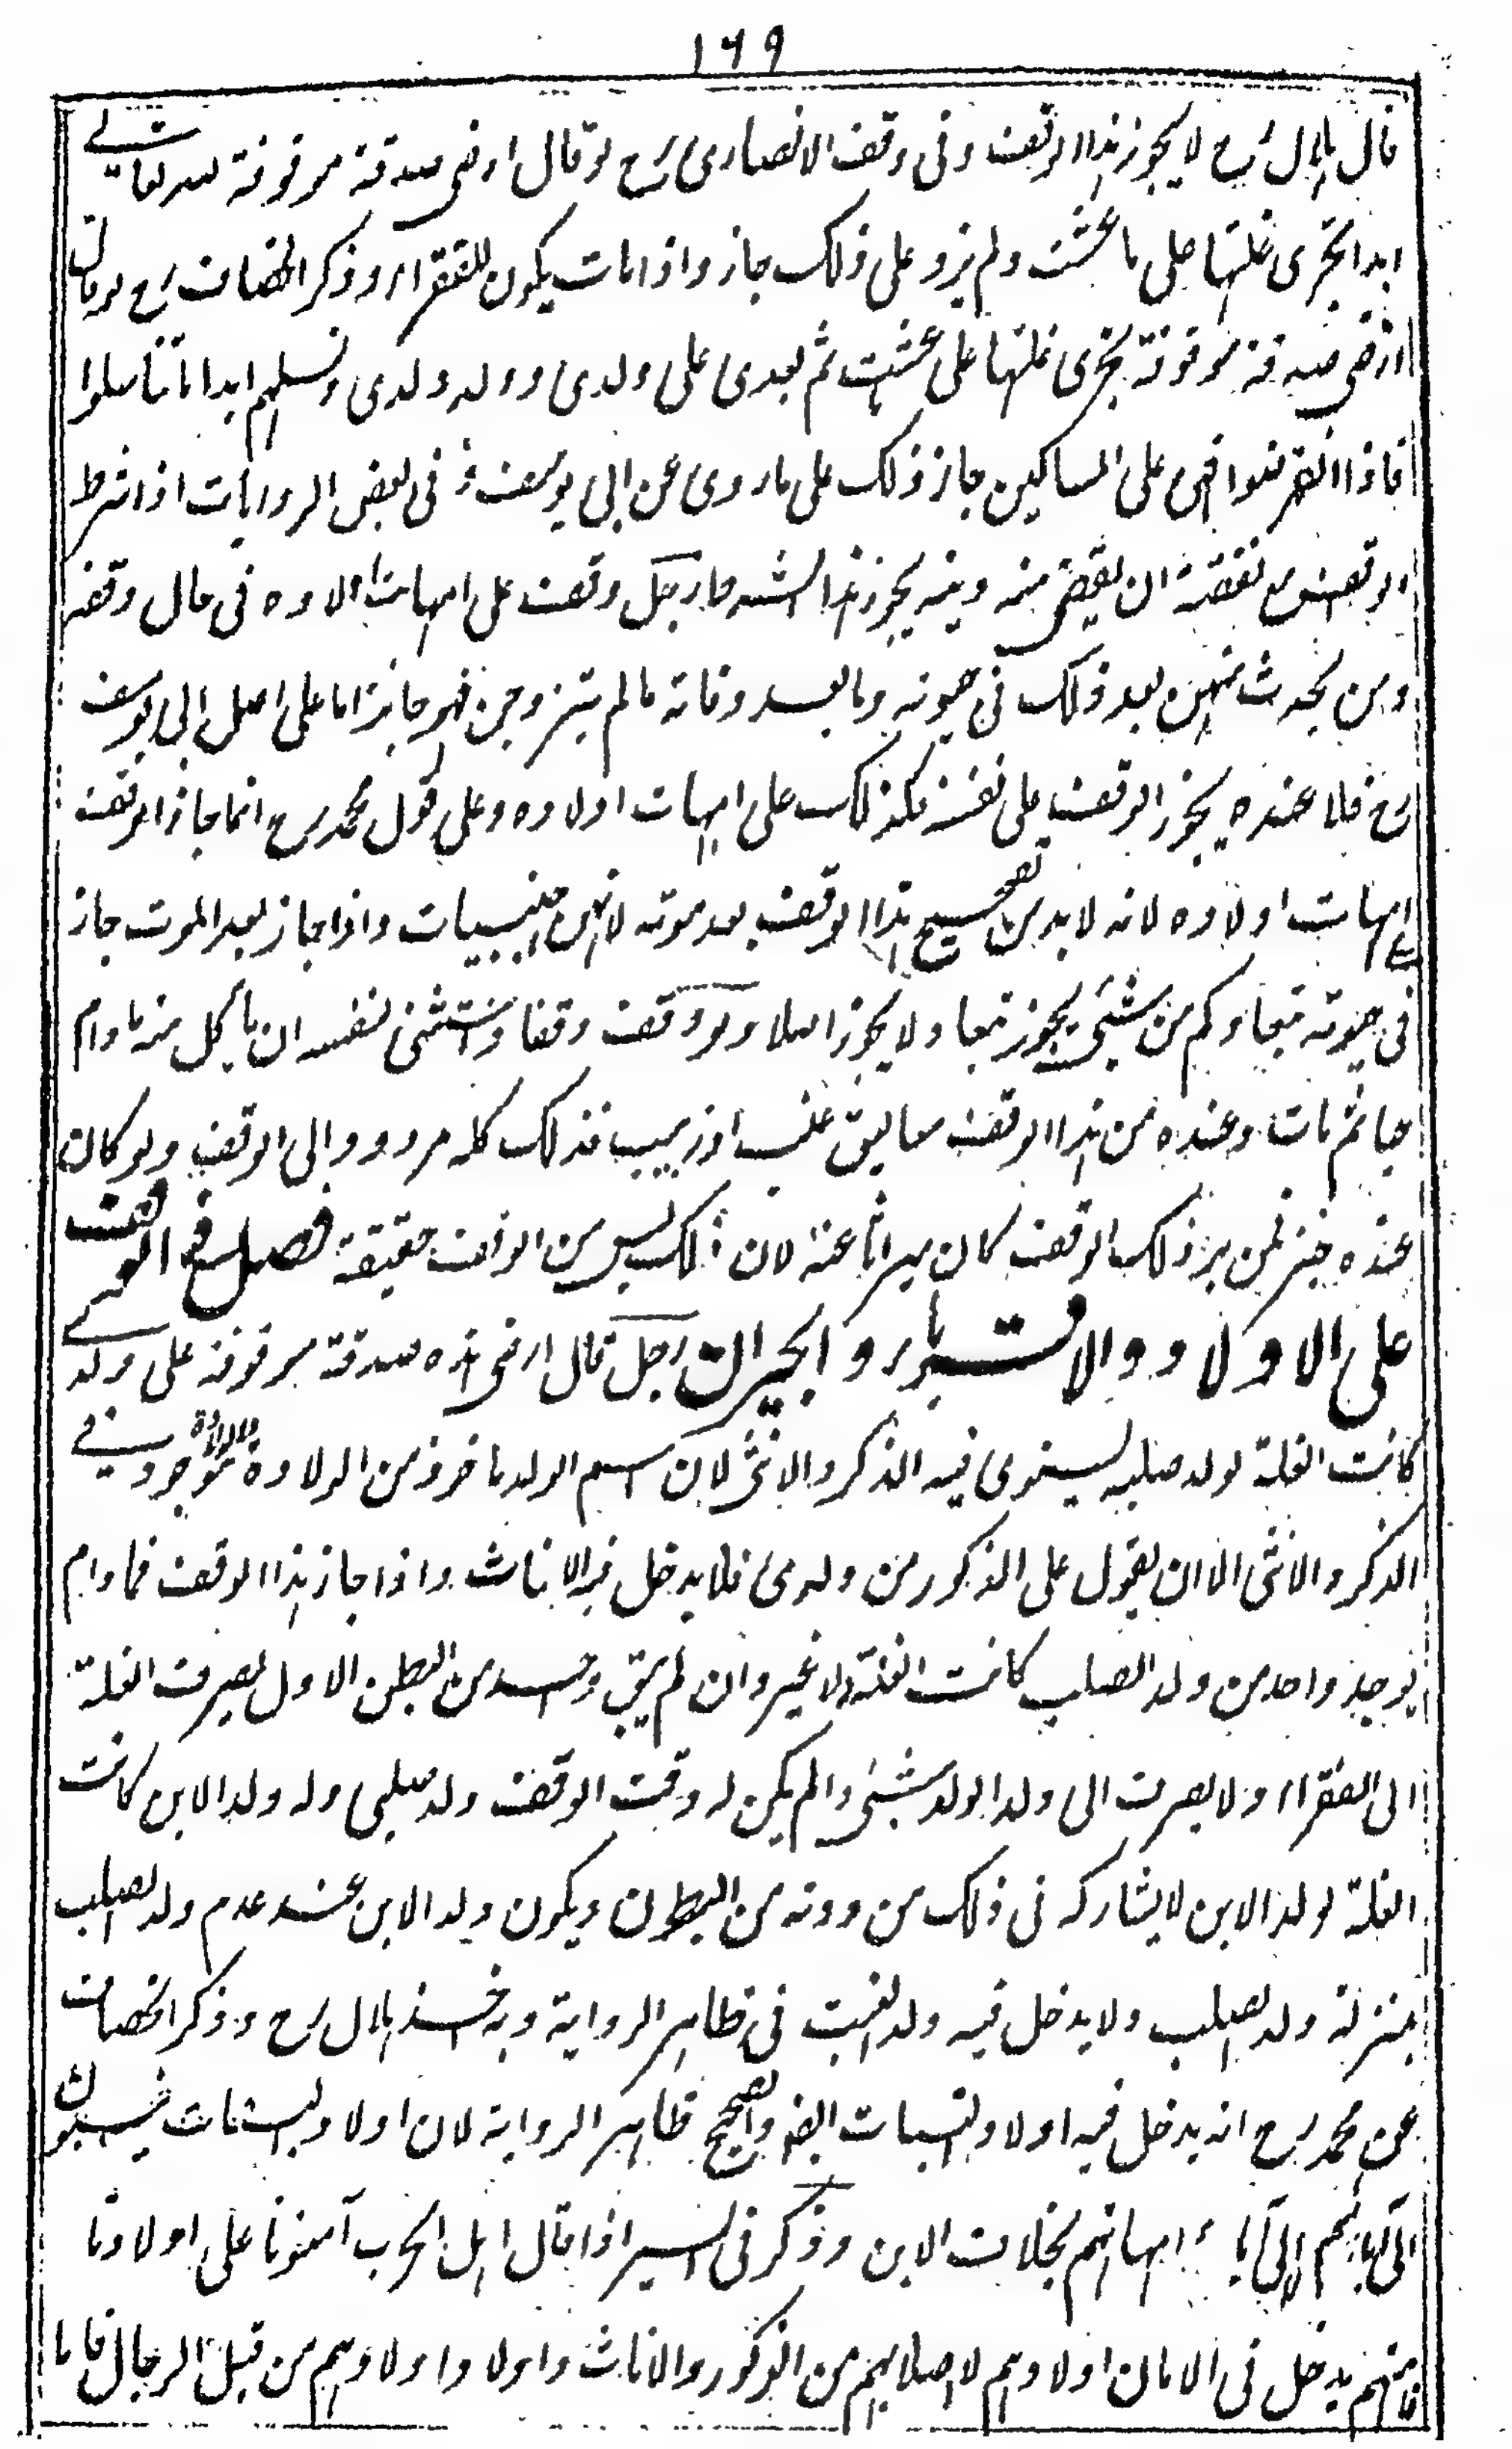 ١٦٩
قال هلال رح لا يجوز هذا الوقف وفى وقف الانصارى رح لو قال ارضى صدقة موقوفة لله تعالى
ابدا تجرى غلتها على ما عشت ولم يزد على ذلك جاز واذا مات يكون للفقراء وذكر الخصاف رح لو قال
ارضى صدقة موقوفة تجرى غلتها على ما عشت ثم بعدى على ولدى وولد ولدى ونسلهم ابدا ما تناسلوا
فاذا انقرضوا فهى على المساكين جاز ذلك على ما روى عن ابى يوسف رح فى بعض الروايات اذا شرط
الوقف نفقته ان يقضى منه دينه يجوز هذا الشرط رجل وقف على امهات اولاده فى حال وقفه
ومن يحدث منهن بعد ذلك فى حيوته وما بعد وفاته ما لم يتزوجن فهو جائز اما على اصل ابى يوسف
رح فلان عنده يجوز الوقف على نفسه فكذلك على امهات اولاده وعلى قول محمد رح انما جاز الوقف
على امهات اولاده لانه لا بد من تصحيح هذا الوقف بعد موته لانهن اجنبيات واذا جاز بعد الموت جاز
فى حيوته تبعا وكم من شئ يجوز تبعا ولا يجوز اصلا ولو وقف وقفا واستثنى لنفسه ان ياكل منه ما دام
حيا ثم مات وعنده من هذا الوقف معاليق عنب او زبيب فذلك كله مردود الى الوقف ولو كان
عنده خبز من بر ذلك الوقف كان ميراثا عنه لان ذلك ليس من الوقف حقيقة فصل فى الوقف
على الاولاد والاقرباء والجيران رجل قال ارضى هذه صدقة موقوفة على ولدى
كانت الغلة لولد صلبه يستوى فيه الذكر والانثى لان اسم الولد ماخوذ من الولادة والولادة موجودة فى
الذكر والانثى الا ان يقول على الذكور من ولدى فلا يدخل فيه الاناث واذا جاز هذا الوقف فما دام
يوجد واحد من ولد الصلب كانت الغلة له لا غير وان لم يبق واحد من البطن الاول يصرف الغلة
الى الفقراء ولا يصرف الى ولد الولد شئ وان لم يكن له وقت الوقف ولد صلبى وله ولد الابن كانت
الغلة لولد الابن لا يشاركه فى ذلك من دونه من البطون ويكون ولد الابن عند عدم ولد الصلب
بمنزلة ولد الصلب ولا يدخل فيه ولد البنت فى ظاهر الرواية وبه اخذ هلال رح وذكر الخصاف
عن محمد رح انه يدخل فيه اولاد البنات ايضا والصحيح ظاهر الرواية لان اولاد البنات ينسبون
الى آبائهم لا الى آباء امهاتهم بخلاف الابن وذكر فى السير اذا قال اهل الحرب آمنونا على اولادنا
فامنهم يدخل فى الامان اولادهم لاصلابهم من الذكور والاناث واولاد اولادهم من قبل الرجال فاما